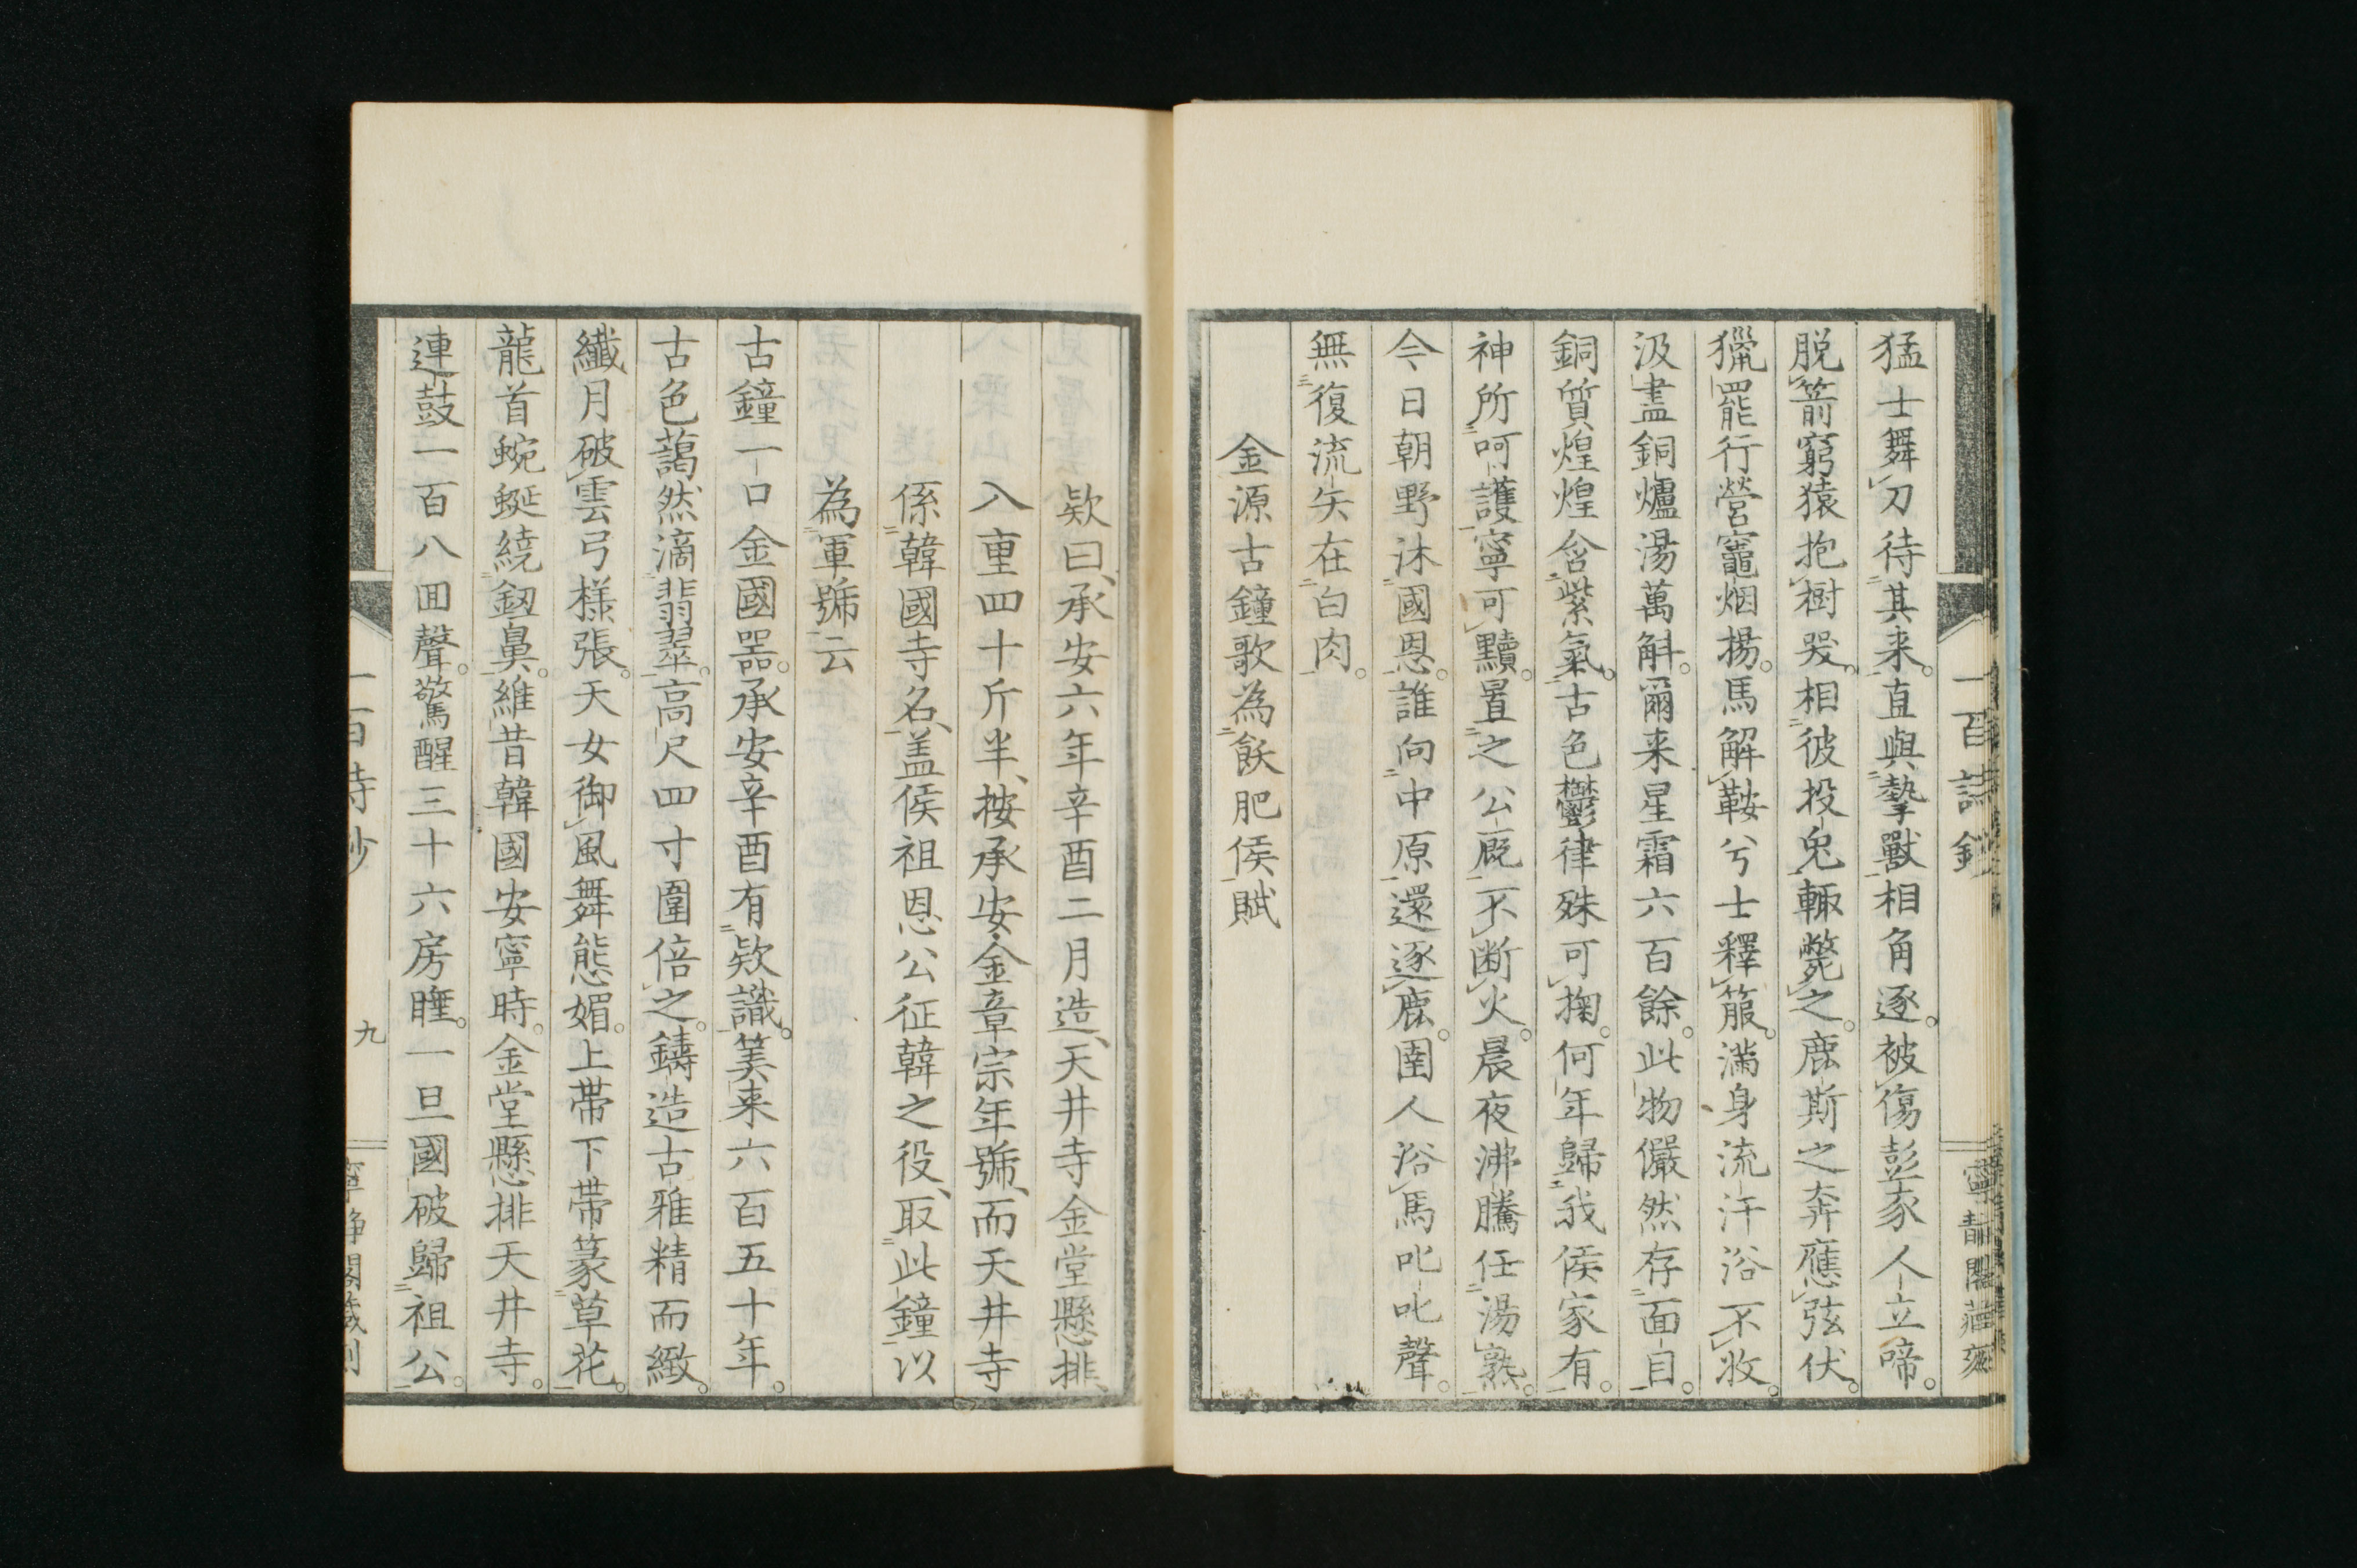 猛士舞刀待其来。直與摯獸相角逐。被傷彭豕人立啼。
脱箭窮猿抱樹哭。相彼投兔輙斃之。鹿斯之奔應弦伏。
獵罷行營竈烟揚。馬解鞍兮士釋箙。滿身流汗浴不收。
汲盡銅爐湯萬斛。爾来星霜六百餘。此物儼然存面目。
銅質煌煌含紫氣。古色鬱律殊可掬。何年歸我侯家有。
神所呵護寧可黷。置之公廐不断火。晨夜沸騰任湯熟。
今日朝野沐國恩。誰向中原還逐鹿。圉人浴馬叱叱聲。
無復流矢在白肉。
金源古鐘歌為飫肥侯賦
欵曰、承安六年辛酉二月造、天井寺金堂懸排、
入重四十斤半、按承安金章宗年號、而天井寺
係韓國寺名、盖侯祖恩公征韓之役、取此鐘以
為軍號云
古鐘一口金國器。承安辛酉有欵識。筭来六百五十年。
古色藹然滴翡翠。高尺四寸圍倍之。鑄造古雅精而緻。
纖月破雲弓様張。天女御風舞態媚。上帯下帯篆草花。
龍首蜿蜒繞釼鼻。維昔韓國安寧時。金堂懸排天井寺。
連鼓一百八囬聲。驚醒三十六房睡。一旦國破歸祖公。
九